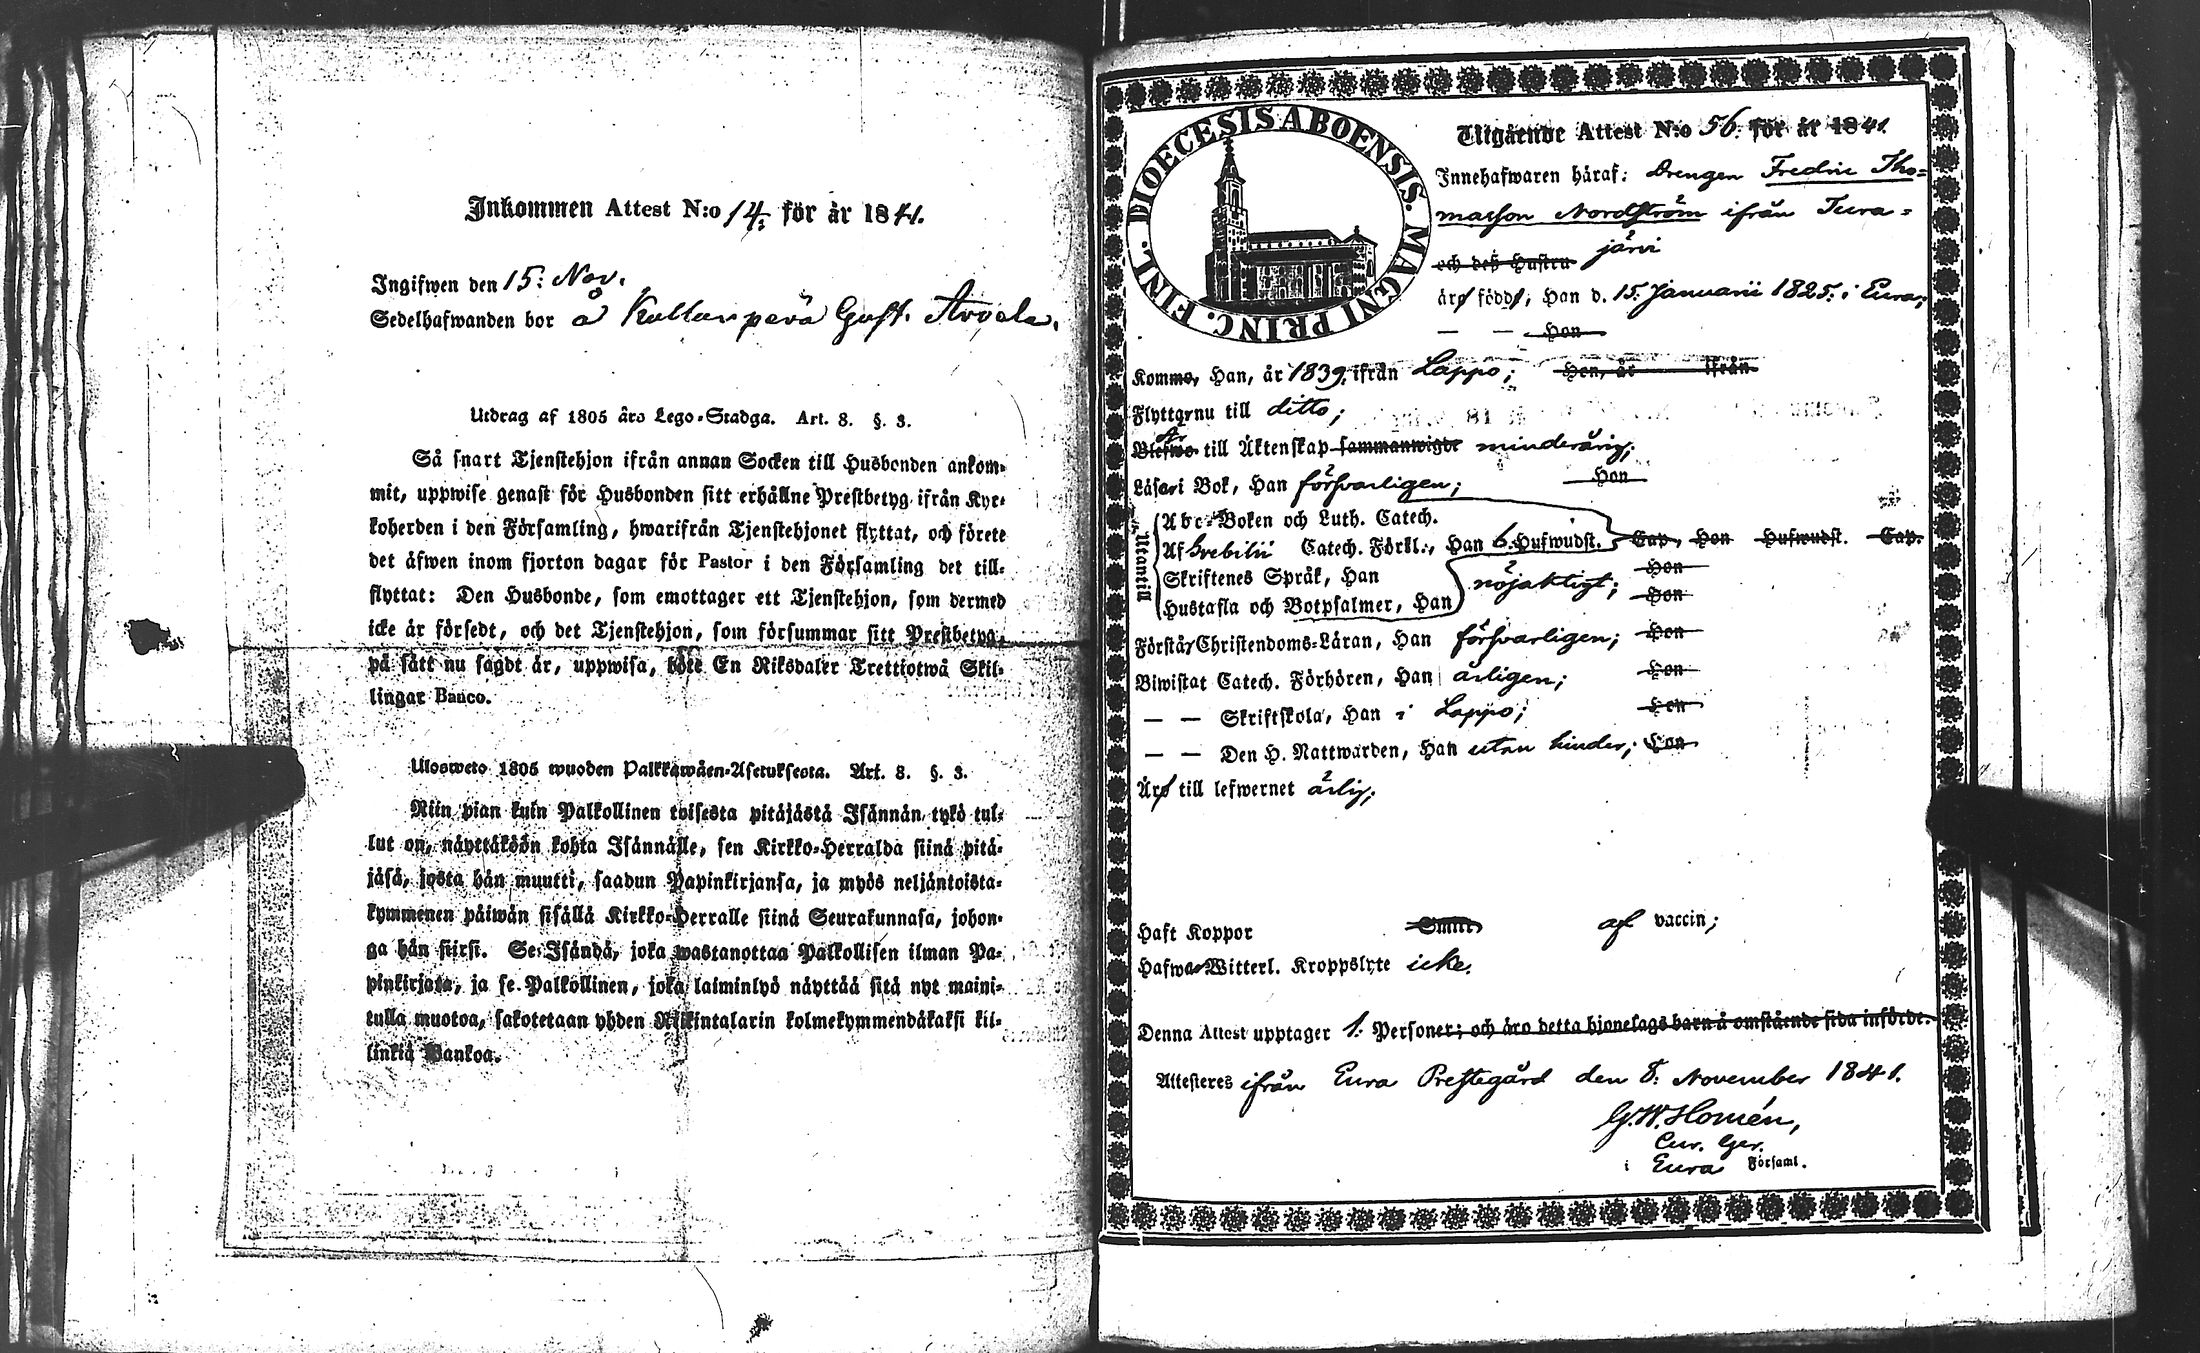 Inkommen Attest N:o 14. för år 1841.
Ingifwen den 15: Nov.
Sedelhafwanden bor å Kullanperä Gust. Arvela.
Utdrag af 1805 års Lego-Stadga. Art. 8. §. 3.
Så snart Tjenstehjon ifrån annan Socken till Husbonden ankom-
mit, uppwise genast för Husbonden sitt erhållne Prestbetyg ifrån Kyr-
koherden i den Församling, hwarifrån Tjenstehjonet flyttat, och förete
det äfwen inom fjorton dagar för Pastor i den Församling det till-
flyttat: Den Husbonde, som emottager ett Tjenstehjon, som dermed
icke är försedt, och det Tjenstehjon, som försummar sitt Prestbetyg,
på sätt nu sagdt är, uppwisa, böte En Riksdaler Trettiotwå Skil-
lingar Banco.
Ulosweto 1805 wuoden Palkkawäen-Asetuksesta. Art. 8. §. 3.
Niin pian kuin Palkollinen toisesta pitäjästä Isännän tykö tul-
lut on, näyttäköön kohta Isännälle, sen Kirkko-Herralda siinä pitä-
jäsä, josta hän muutti, saadun Papinkirjansa, ja myös neljäntoista-
kymmenen päiwän sisällä Kirkko-Herralle siinä Seurakunnasa, johon-
ga hän siirsi. Se Isändä, joka wastanottaa Palkollisen ilman Pa-
pinkirjata, ja se Palkollinen, joka laiminlyö näyttää sitä nyt maini-
tulla muotoa, sakotetaan yhden Riikintalarin kolmekymmendäkaksi kil-
linkiä Bankoa.
DIOECESIS ABOENSIS. MAGNI PRINC. FINL.
Utgående Attest N:o 56. för år 1841.
Innehafwaren häraf: Drengen Fredric Tho-
masson Nordström ifrån Tura-
och deß Hustru järvi
äro födde, Han d. 15. Januarii 1825. i Eura;
— — Hon
Komme, Han, år 1839. ifrån Lappo; Hon, år ifrån
Flyttar nu till ditto;
Blefwo Är till Äktenskap sammanwigde minderårig;
Läsa i Bok, Han försvarligen; Hon
Utantill
Abc-Boken och Luth. Catech.
Af Grebilii Catech. Förkl., Han 6. Hufwudst. Cap, Hon Hufwudst. Cap.
Skriftenes Språk, Han nöjaktigt; Hon
Hustafla och Botpsalmer, Han Hon
Förstår Christendoms-Läran, Han försvarligen; Hon
Biwistat Catech. Förhören, Han årligen; Hon
— — Skriftskola, Han i Lappo; Hon
— — Den H. Nattwarden, Han utan hinder; Hon
Äro till lefwernet ärlig;
Haft Koppor Smitt. af vaccin;
Hafwa Witterl. Kroppslyte icke.
Denna Attest upptager 1. Personer; och äro detta hjonelags barn å omstående sida införde.
Attesteres ifrån Eura Prestegård den 8. November 1841.
G.W. Homén,
Cur. Ger.
i Eura Församl.